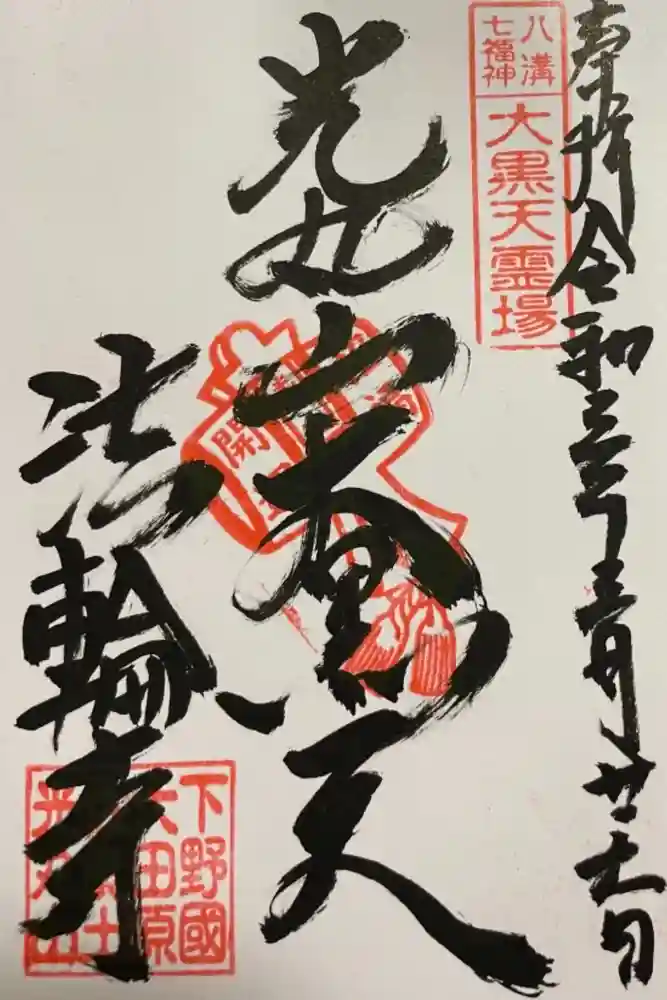 奉拝 令和三年
八溝
七福神
大黒天霊場
光丸山
大黒天
法輪寺
下野國
大田原
光丸山